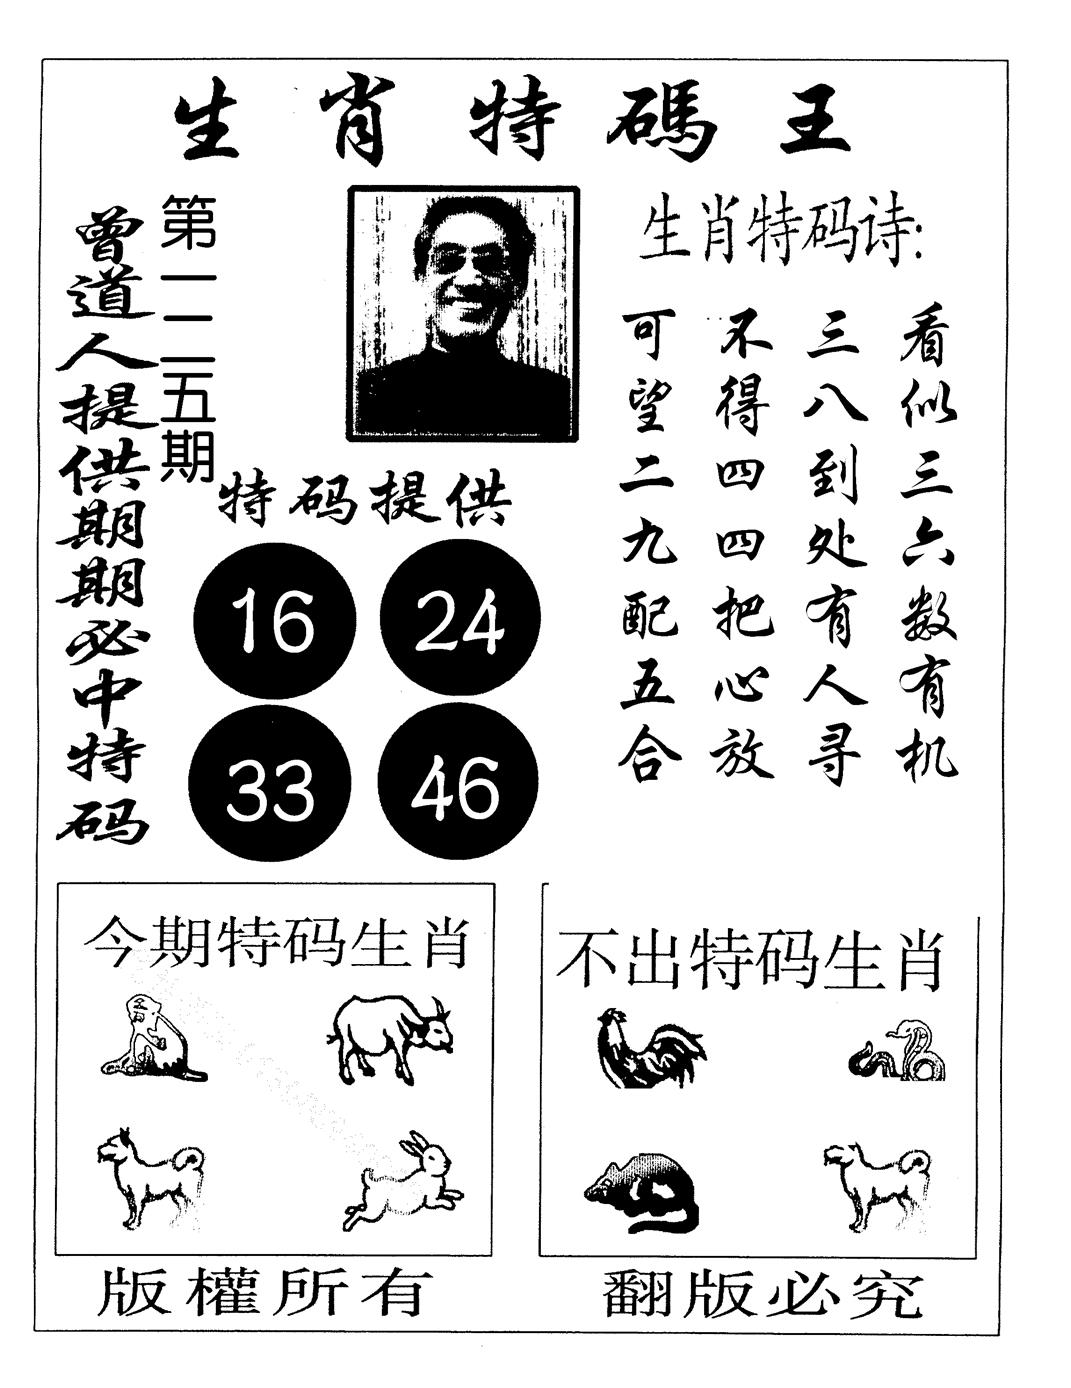 生肖特碼王
曾道人提供期期必中特码
第一二五期
生肖特码诗:
看似三六数有机
三八到处有人寻
不得四四把心放
可望二九配五合
特码提供
16 24
33 46
今期特码生肖
不出特码生肖
版權所有
翻版必究